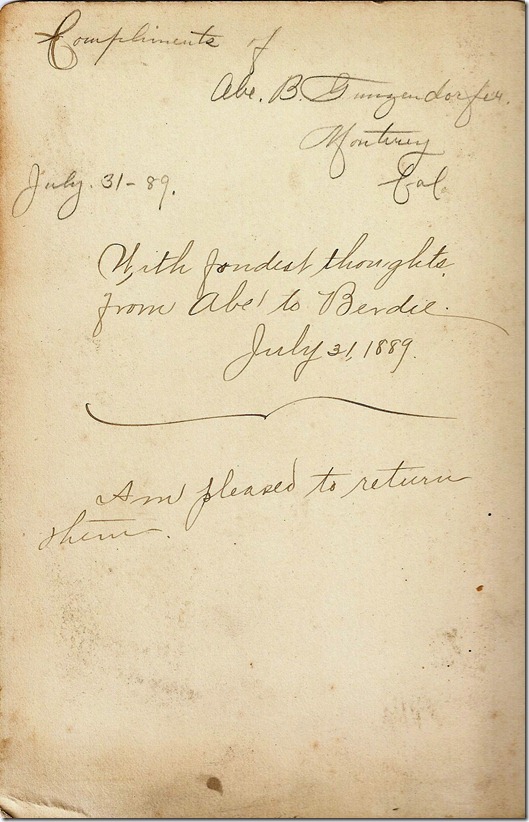 Compliments of
Abe. B. Gunzendorfer.
Monterey
Cal
July. 31-89.
With fondest thoughts
from Abe' to Berdie.
July 31, 1889.
Am pleased to return
them.